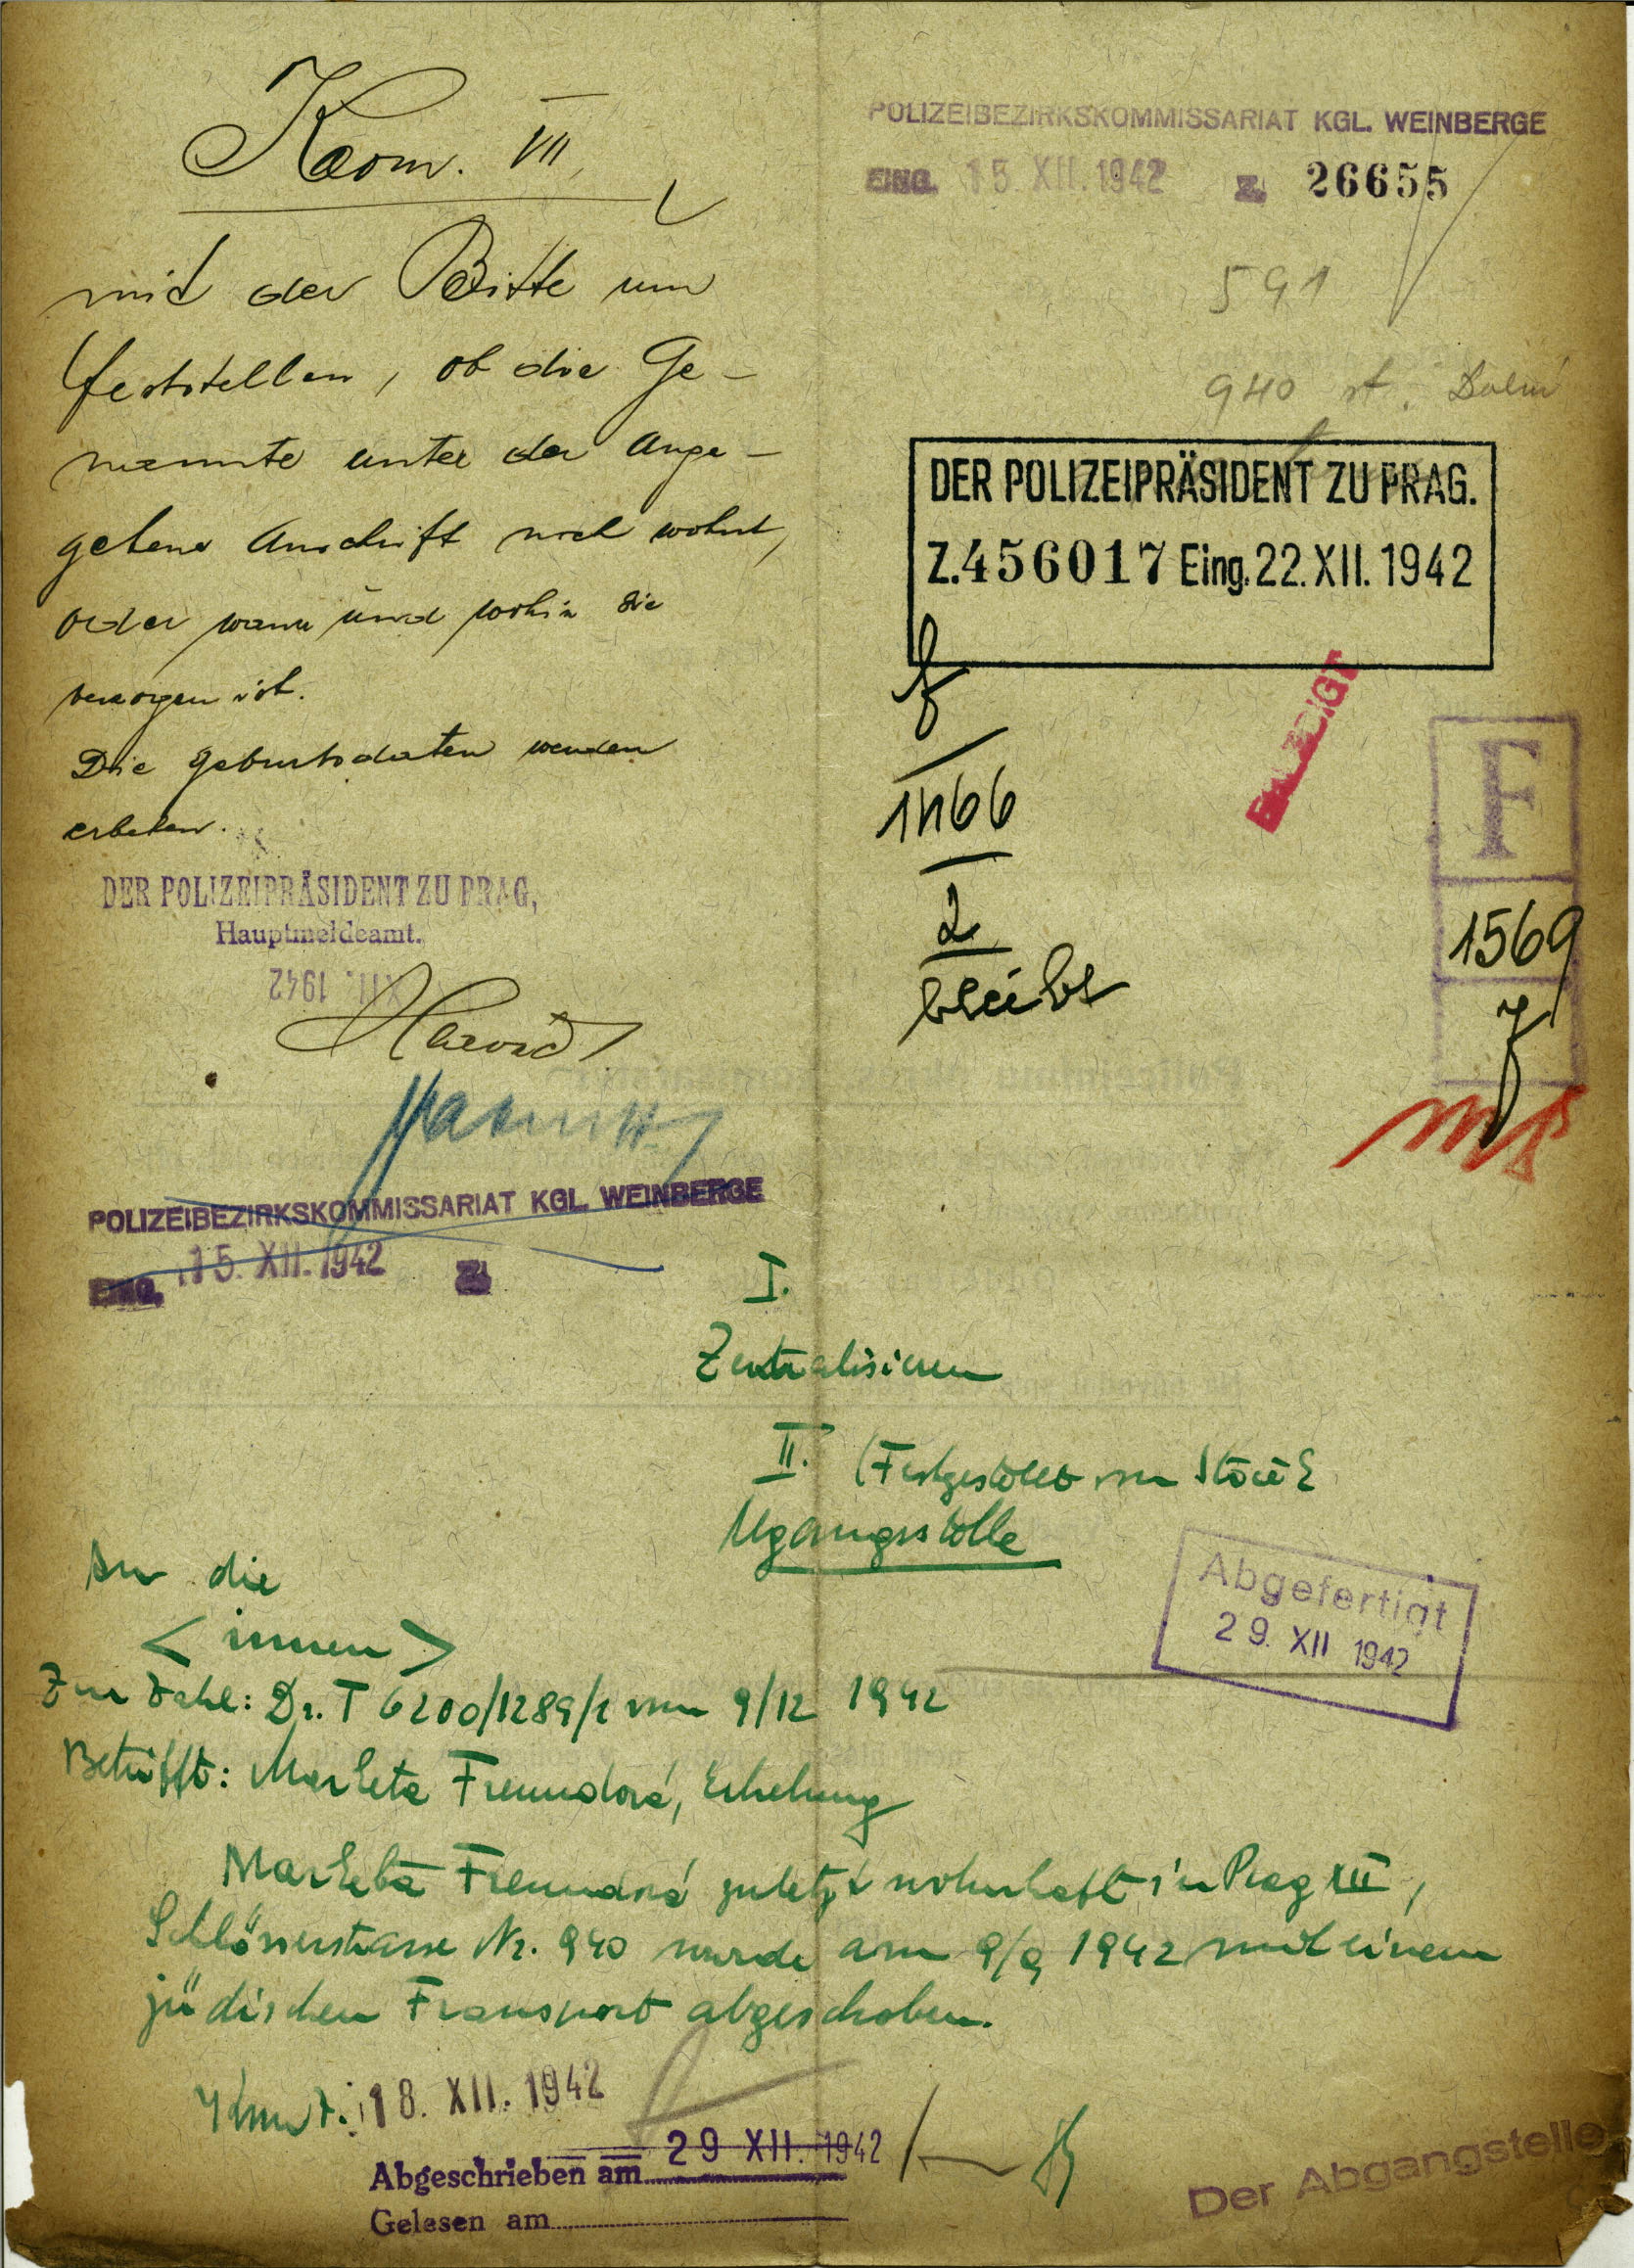 Kom. VII
mit der Bitte um
feststellen, ob die Ge-
nannte unter der ange-
gebene Anschrift noch wohnt,
oder wann und wohin sie
verzogen ist.
Die Geburtsdaten werden
erbeten.
DER POLIZEIPRÄSIDENT ZU PRAG,
Hauptmeldeamt.
XII. 1942
POLIZEIBEZIRKSKOMMISSARIAT KGL. WEINBERGE
EING. 15. XII. 1942 Z.
POLIZEIBEZIRKSKOMMISSARIAT KGL. WEINBERGE
EING. 15. XII. 1942 Z. 26655
591
940 st.
DER POLIZEIPRÄSIDENT ZU PRAG.
Z. 456017 Eing. 22. XII. 1942
ERLEDIGT
1466
2
bleibt
F
1569
I.
Zentralisieren
II. (Festgestellt
Abgefertigt
29. XII 1942
An die
<innen>
Zur Zahl: Dr. T 6200/1289/2 vom 9/12 1942
Betrifft: Marketa Freundová, Erhebung
Marketa Freundová zuletzt wohnhaft in Prag XII,
Schlösserstrasse Nr. 940 wurde am 9/9 1942 mit einem
jüdischen Transport abgeschoben.
18. XII. 1942
Abgeschrieben am 29 XII. 1942
Gelesen am
Der Abgangstelle